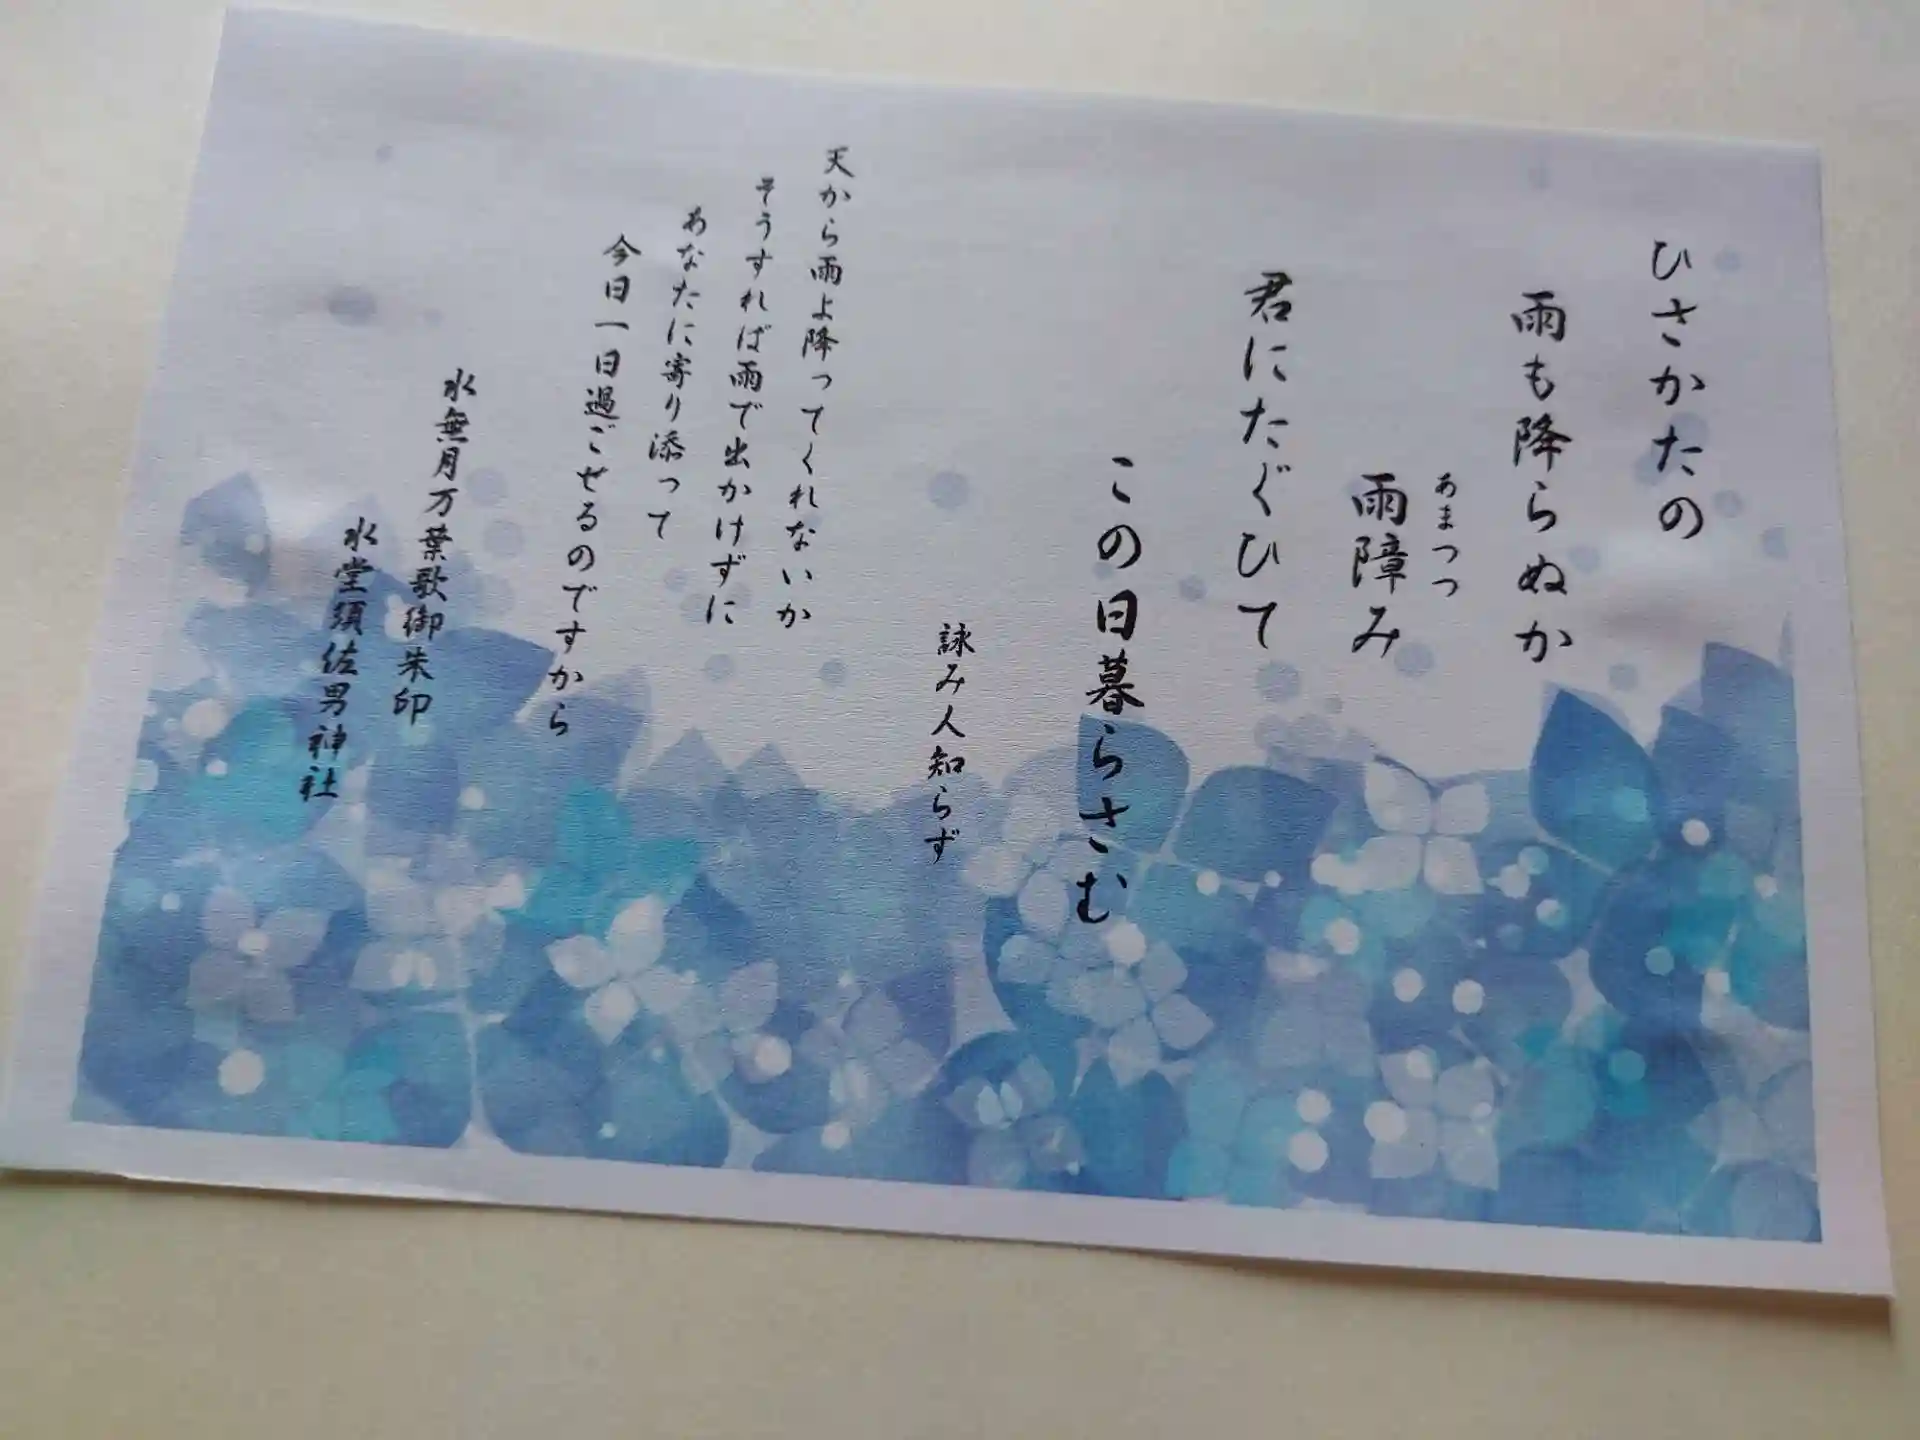 ひさかたの
雨も降らぬか
あまつつ
雨障み
君にたぐひて
この日暮らさむ
詠み人知らず
天から雨よ降ってくれないか
そうすれば雨で出かけずに
あなたに寄り添って
今日一日過ごせるのですから
水無月万葉歌御朱印
水堂須佐男神社